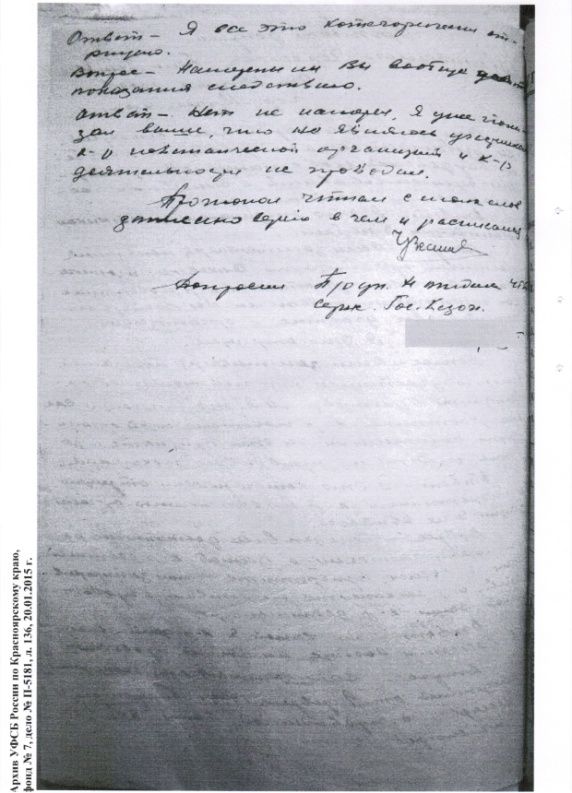 Ответ – Я все это категорически от-
рицаю.
Вопрос – Намерены ли Вы вообще дават
показания следствию.
Ответ – Нет не намерен, Я уже пока-
зал выше, что не являюсь участником
к-р повстанческой организации и к-р
деятельности не проводил.
Протокол читал с моих слов
записано верно в чем и расписался
Допросил
Гос. Безоп.
Архив УФСБ России по Красноярскому краю,
фонд № 7, дело № П-5181, л. 136, 20.01.2015 г.